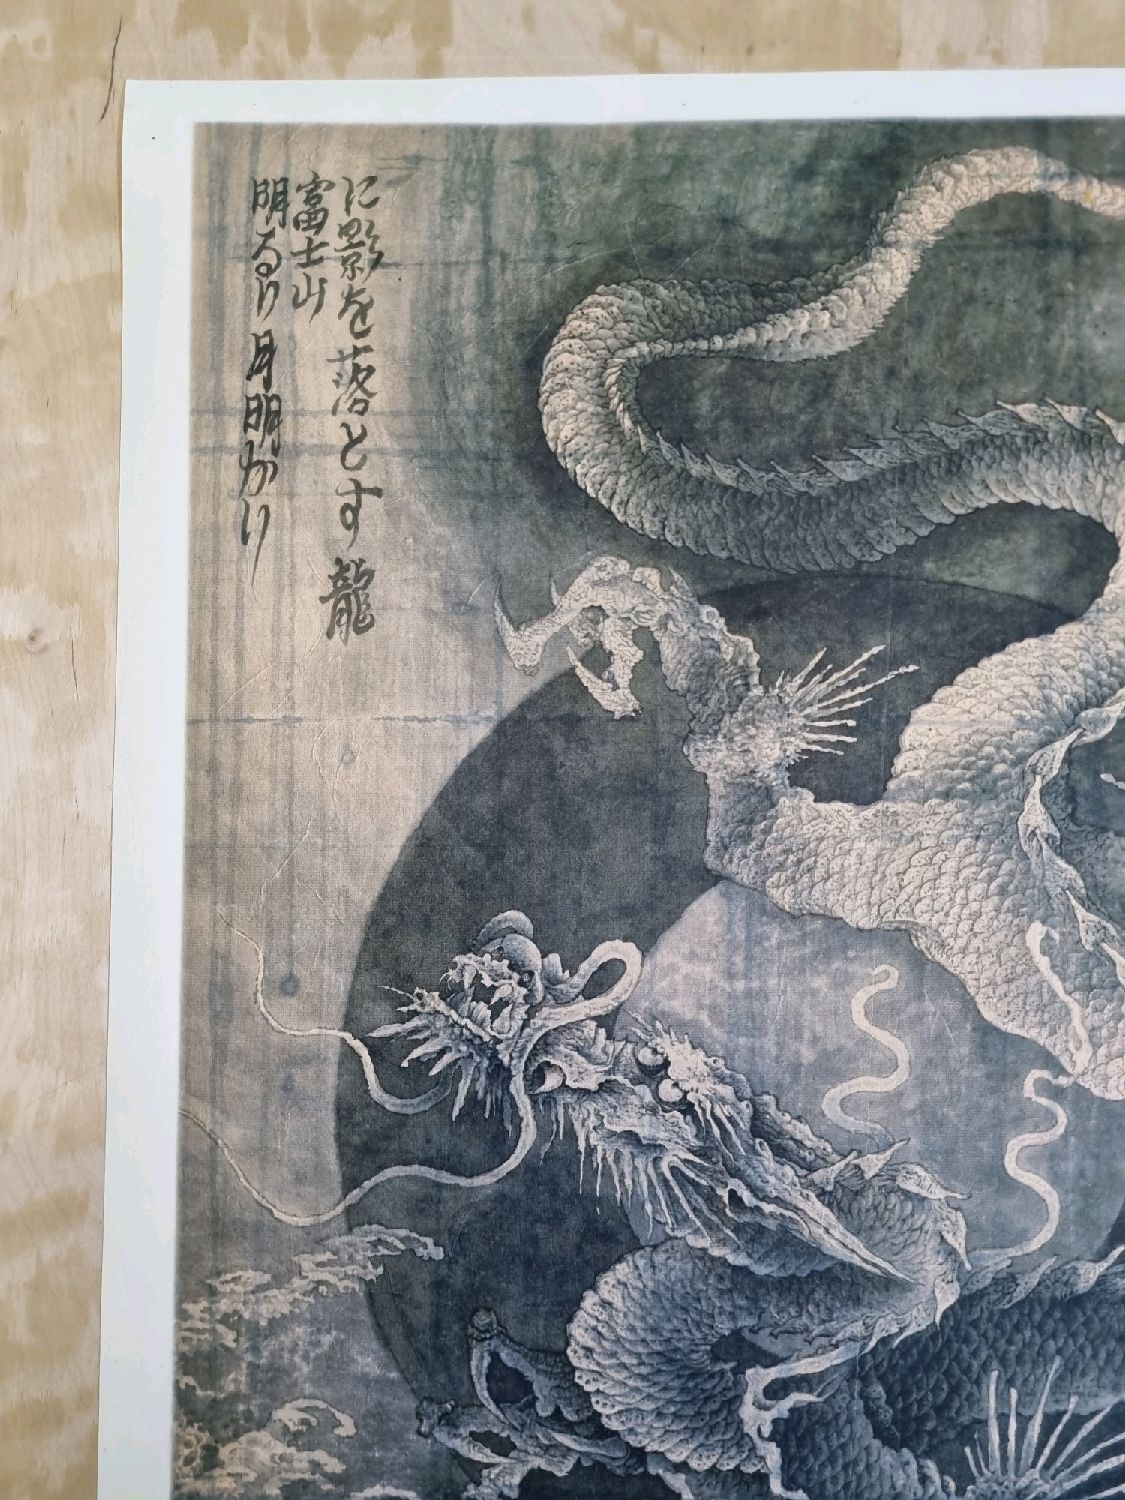 に影を落とす 龍
富士山
明るい月明かり